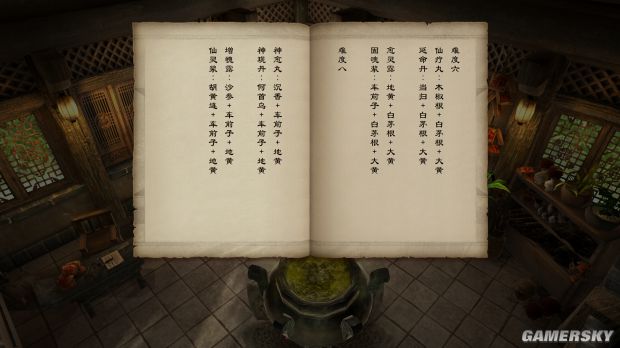 难度六
仙疗丸：木椒根+白茅根+大黄
延命丹：当归+白茅根+大黄
愈灵露：地黄+白茅根+大黄
固魂浆：车前子+白茅根+大黄
难度八
神愈丸：沉香+车前子+地黄
丹：何首乌+车前子+地黄
增魄露：沙参+车前子+地黄
仙灵浆：胡黄连+车前子+地黄
GAMERSKY